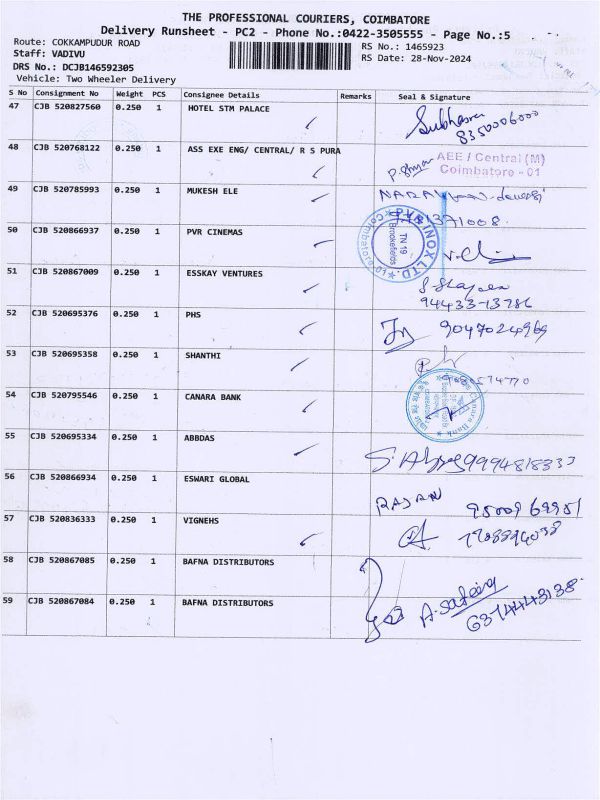 THE PROFESSIONAL COURIERS, COIMBATORE
Delivery Runsheet - PC2 - Phone No.:0422-3505555 - Page No.:5
Route: COKKAMPUDUR ROAD
RS No.: 1465923
Staff: VADIVU
RS Date: 28-Nov-2024
DRS No.: DCJB146592305
Vehicle: Two Wheeler Delivery
S No Consignment No Weight PCS Consignee Details Remarks Seal & Signature
47 CJB 520827560 0.250 1 HOTEL STM PALACE
8350006000
48 CJB 520768122 0.250 1 ASS EXE ENG/ CENTRAL/ R S PURA
AEE / Central (M)
Coimbatore - 01
49 CJB 520785993 0.250 1 MUKESH ELE
50 CJB 520866937 0.250 1 PVR CINEMAS
PVR INOX LTD.
TN 19
Brookefields
51 CJB 520867009 0.250 1 ESSKAY VENTURES
94433-13786
52 CJB 520695376 1 PHS
9047024969
53 CJB 520695358 0.250 1 SHANTHI
54 CJB 520795546 0.250 1 CANARA BANK
Canara Bank
55 CJB 520695334 0.250 1 ABBDAS
9994818333
56 CJB 520866934 0.250 1 ESWARI GLOBAL
RAJAN
57 CJB 520836333 0.250 1 VIGNEHS
58 CJB 520867085 0.250 1 BAFNA DISTRIBUTORS
59 CJB 520867084 0.250 1 BAFNA DISTRIBUTORS
6374443138